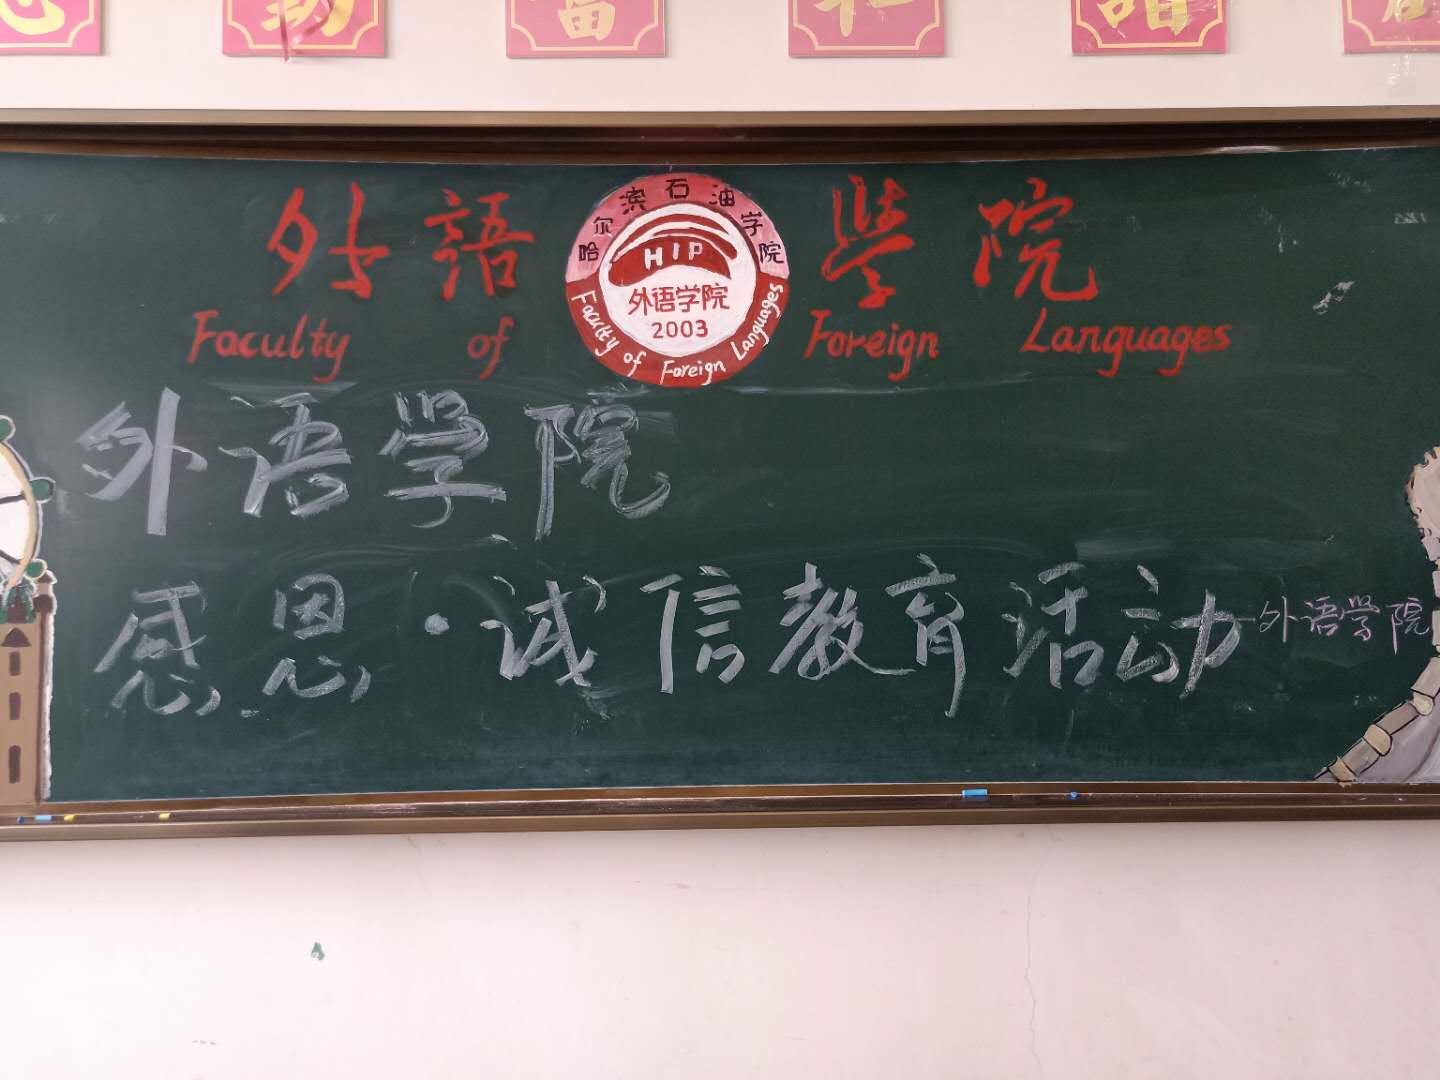 外語 學院
哈尔滨石油学院
HIP
外语学院
2003
Faculty of Foreign Languages
Faculty of Foreign Languages
外语学院
感恩·诚信教育活动
外语学院